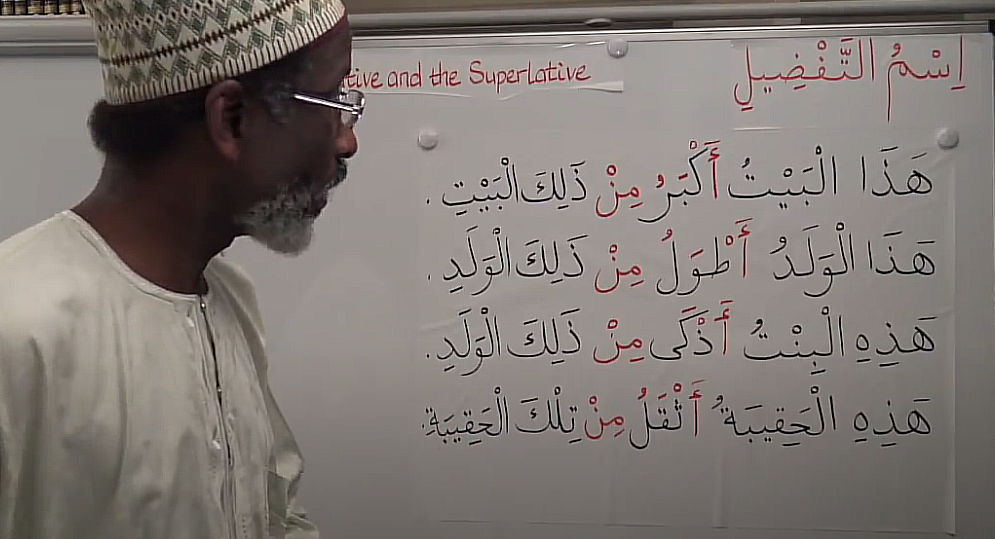 اِسْمُ التَّفْضِيلِ
tive and the Superlative
هَذَا الْبَيْتُ أَكْبَرُ مِنْ ذَلِكَ الْبَيْتِ .
هَذَا الْوَلَدُ أَطْوَلُ مِنْ ذَلِكَ الْوَلَدِ .
هَذِهِ الْبِنْتُ أَذْكَى مِنْ ذَلِكَ الْوَلَدِ .
هَذِهِ الْحَقِيبَةُ أَثْقَلُ مِنْ تِلْكَ الْحَقِيبَةِ .